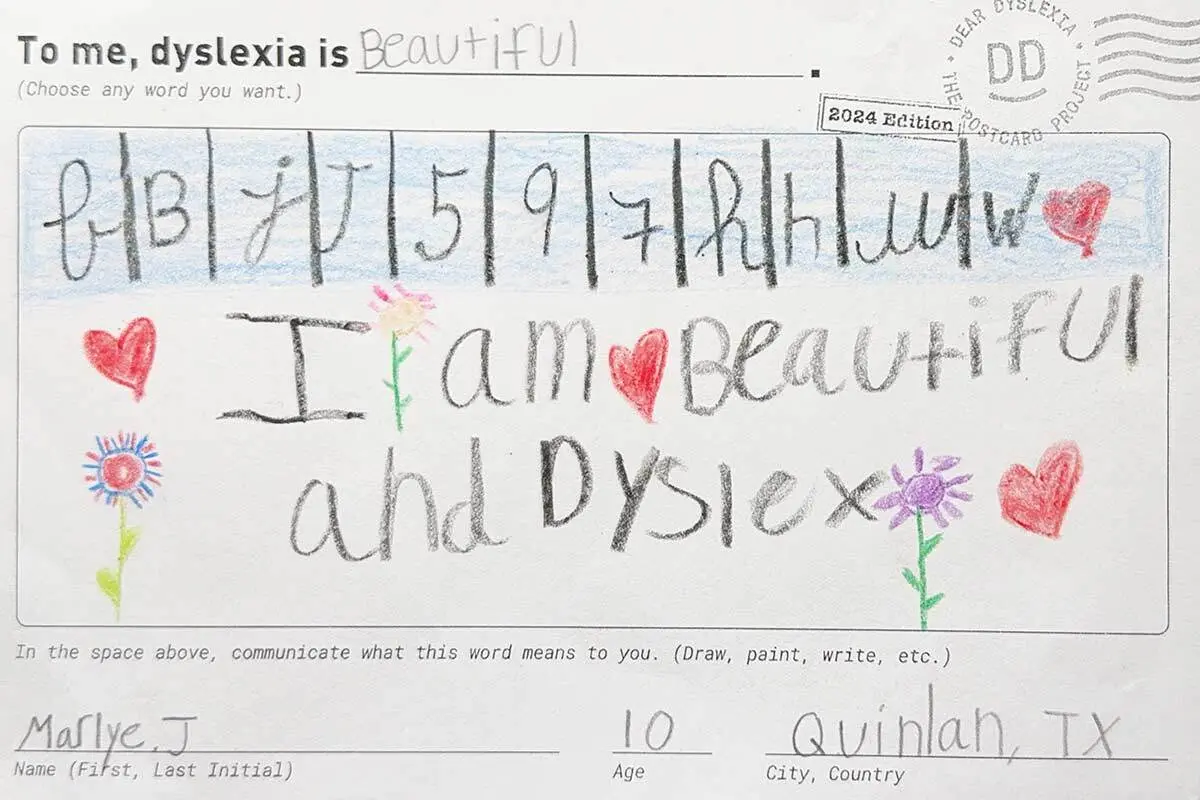 To me, dyslexia is Beautiful.
(Choose any word you want.)
DEAR DYSLEXIA • THE POSTCARD PROJECT •
DD
2024 Edition
b B j J 5 9 7 h h w w
I am Beautiful
and Dyslex
In the space above, communicate what this word means to you. (Draw, paint, write, etc.)
Marlye. J
Name (First, Last Initial)
10
Age
Quinlan, TX
City, Country